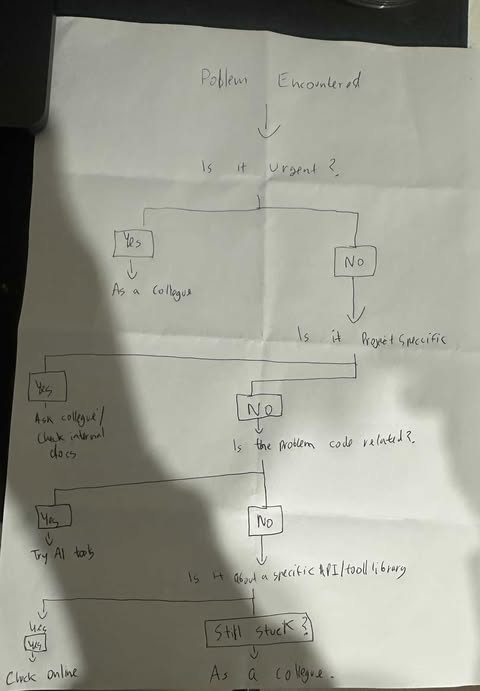 Poblem Encountered
Is it urgent?
Yes
NO
As a collegue
Is it Project Specific
Yes
NO
Ask collegue/
Check internal
docs
Is the problem code related?
Yes
NO
Try AI tools
Is it about a specific API/tool/library
Yes
Yes
Still stuck?
Check online
As a collegue.